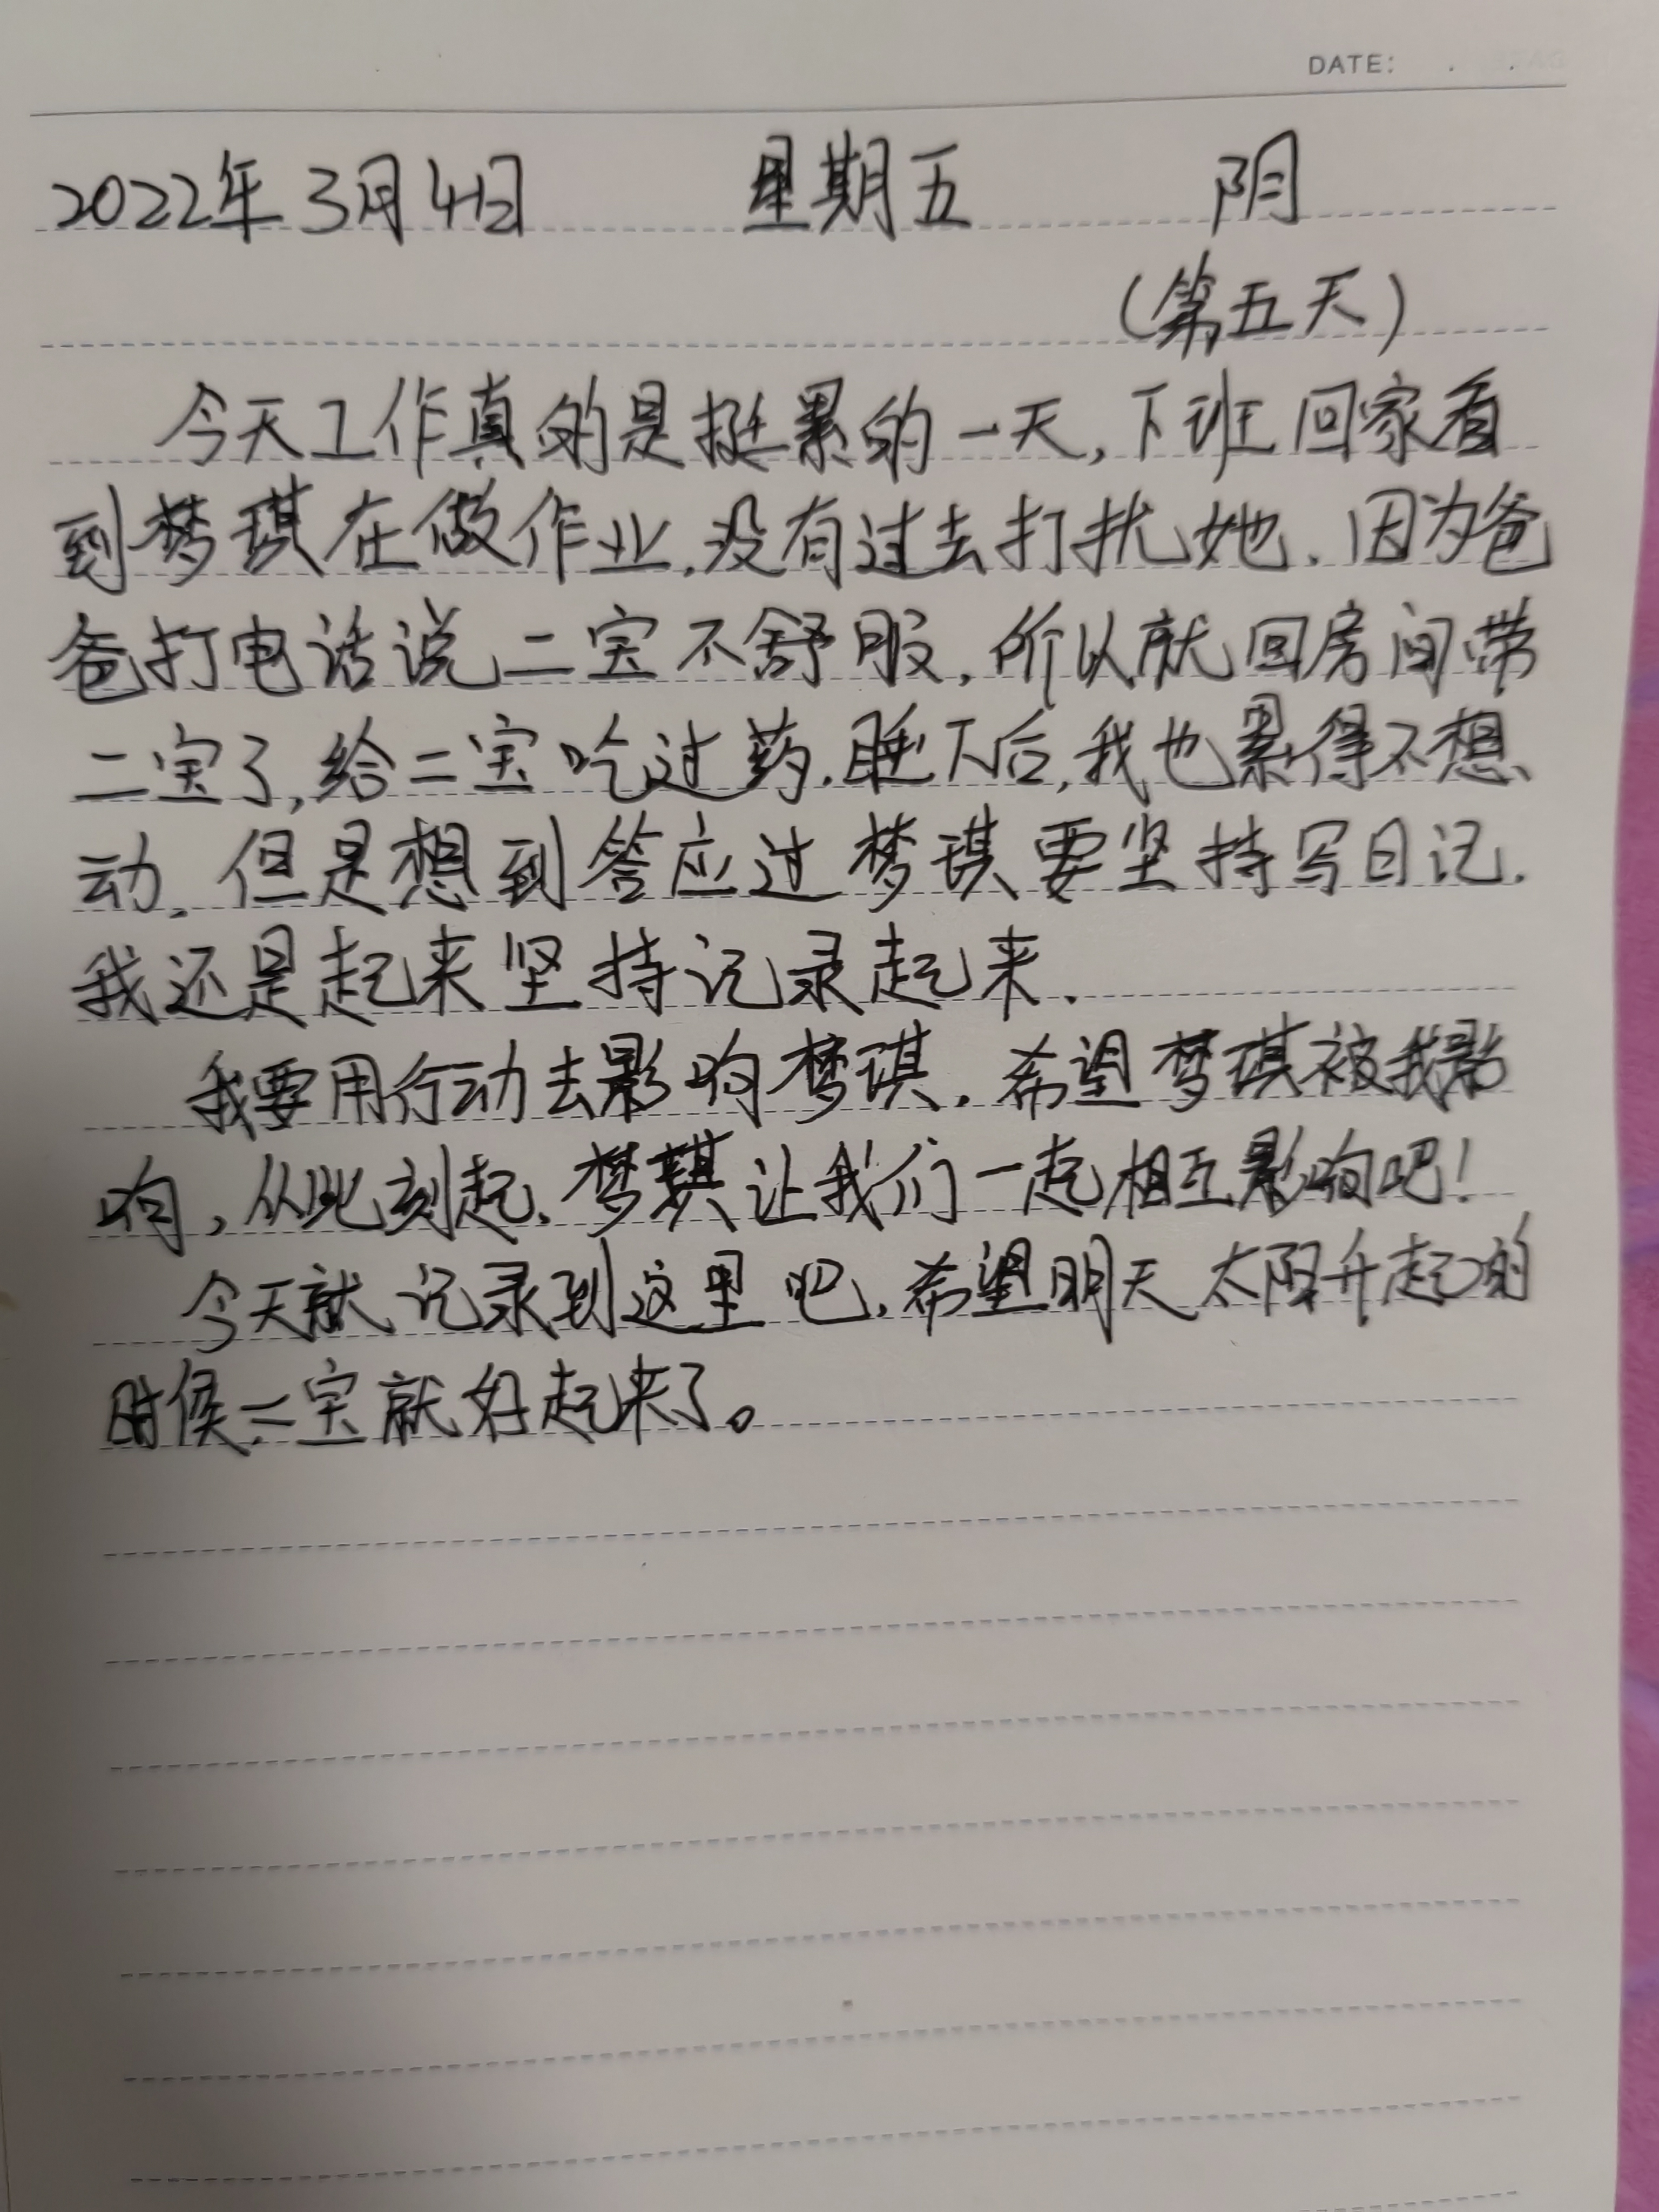 DATE: . .
2022年3月4日 星期五 阴
(第五天)
今天工作真的是挺累的一天,下班回家看
到梦琪在做作业,没有过去打扰她.因为爸
爸打电话说二宝不舒服,所以就回房间带
二宝了,给二宝吃过药.睡下后,我也累得不想
动.但是想到答应过梦琪要坚持写日记.
我还是起来坚持记录起来.
我要用行动去影响梦琪.希望梦琪被我影
响,从此刻起.梦琪让我们一起相互影响吧!
今天就记录到这里吧.希望明天太阳升起的
时侯二宝就好起来了。